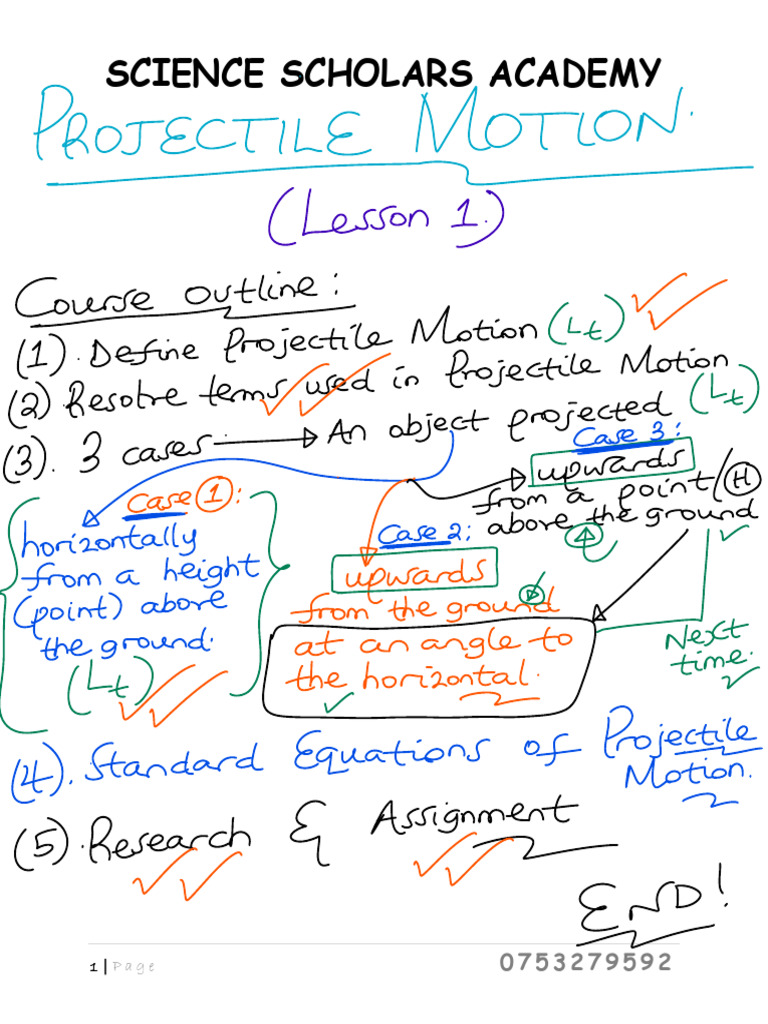 SCIENCE SCHOLARS ACADEMY
PROJECTILE MOTION.
(Lesson 1.)
Course outline:
(1). Define Projectile Motion (Lt)
(2) Resolve terms used in Projectile Motion
(Lt)
(3). 3 cases → An object projected
Case 1:
horizontally
from a height
(point) above
the ground.
(Lt)
Case 2:
upwards
from the ground
at an angle to
the horizontal.
Case 3:
upwards
from a point/(H)
above the ground
Next
time.
(4). Standard Equations of Projectile
Motion.
(5). Research & Assignment
END!
1 | Page
0753279592